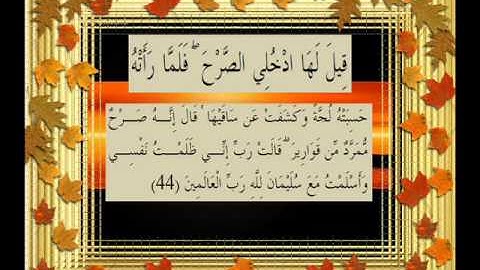 قِيلَ لَهَا ادْخُلِي الصَّرْحَ ۖ فَلَمَّا رَأَتْهُ
حَسِبَتْهُ لُجَّةً وَكَشَفَتْ عَن سَاقَيْهَا ۚ قَالَ إِنَّهُ صَرْحٌ
مُّمَرَّدٌ مِّن قَوَارِيرَ ۗ قَالَتْ رَبِّ إِنِّي ظَلَمْتُ نَفْسِي
وَأَسْلَمْتُ مَعَ سُلَيْمَانَ لِلَّهِ رَبِّ الْعَالَمِينَ (44)